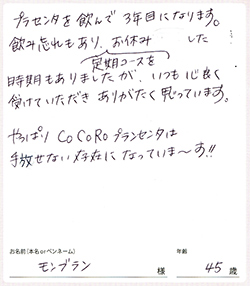 プラセンタを飲んで 3年目になります。
飲み忘れもあり、お休み した
定期コースを
時期もありましたが、いつも心良く
受けていただき ありがたく思っています。
やっぱり CoCoRoプランセンタは
手放せない存在になっていま〜す!!
お名前(本名orペンネーム)
年齢
モンブラン 様 45 歳